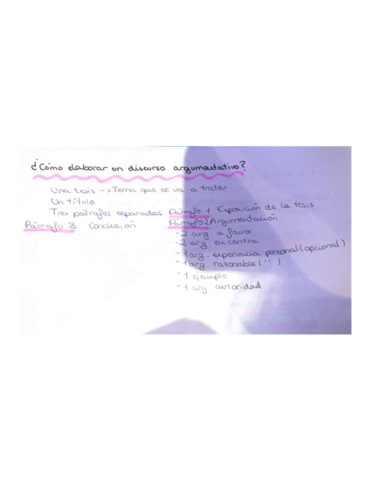 ¿Cómo elaborar un discurso argumentativo?
Una tesis -> Tema que se va a tratar
Un título
Tres párrafos separados Párrafo 1 Exposición de la tesis
Párrafo 3 Conclusión Párrafo 2 Argumentación
- 2 arg a favor
- 2 arg en contra
- 1 arg. experiencia personal (opcional)
- 1 arg. razonable (!!)
- 1 ejemplo
- 1 arg autoridad